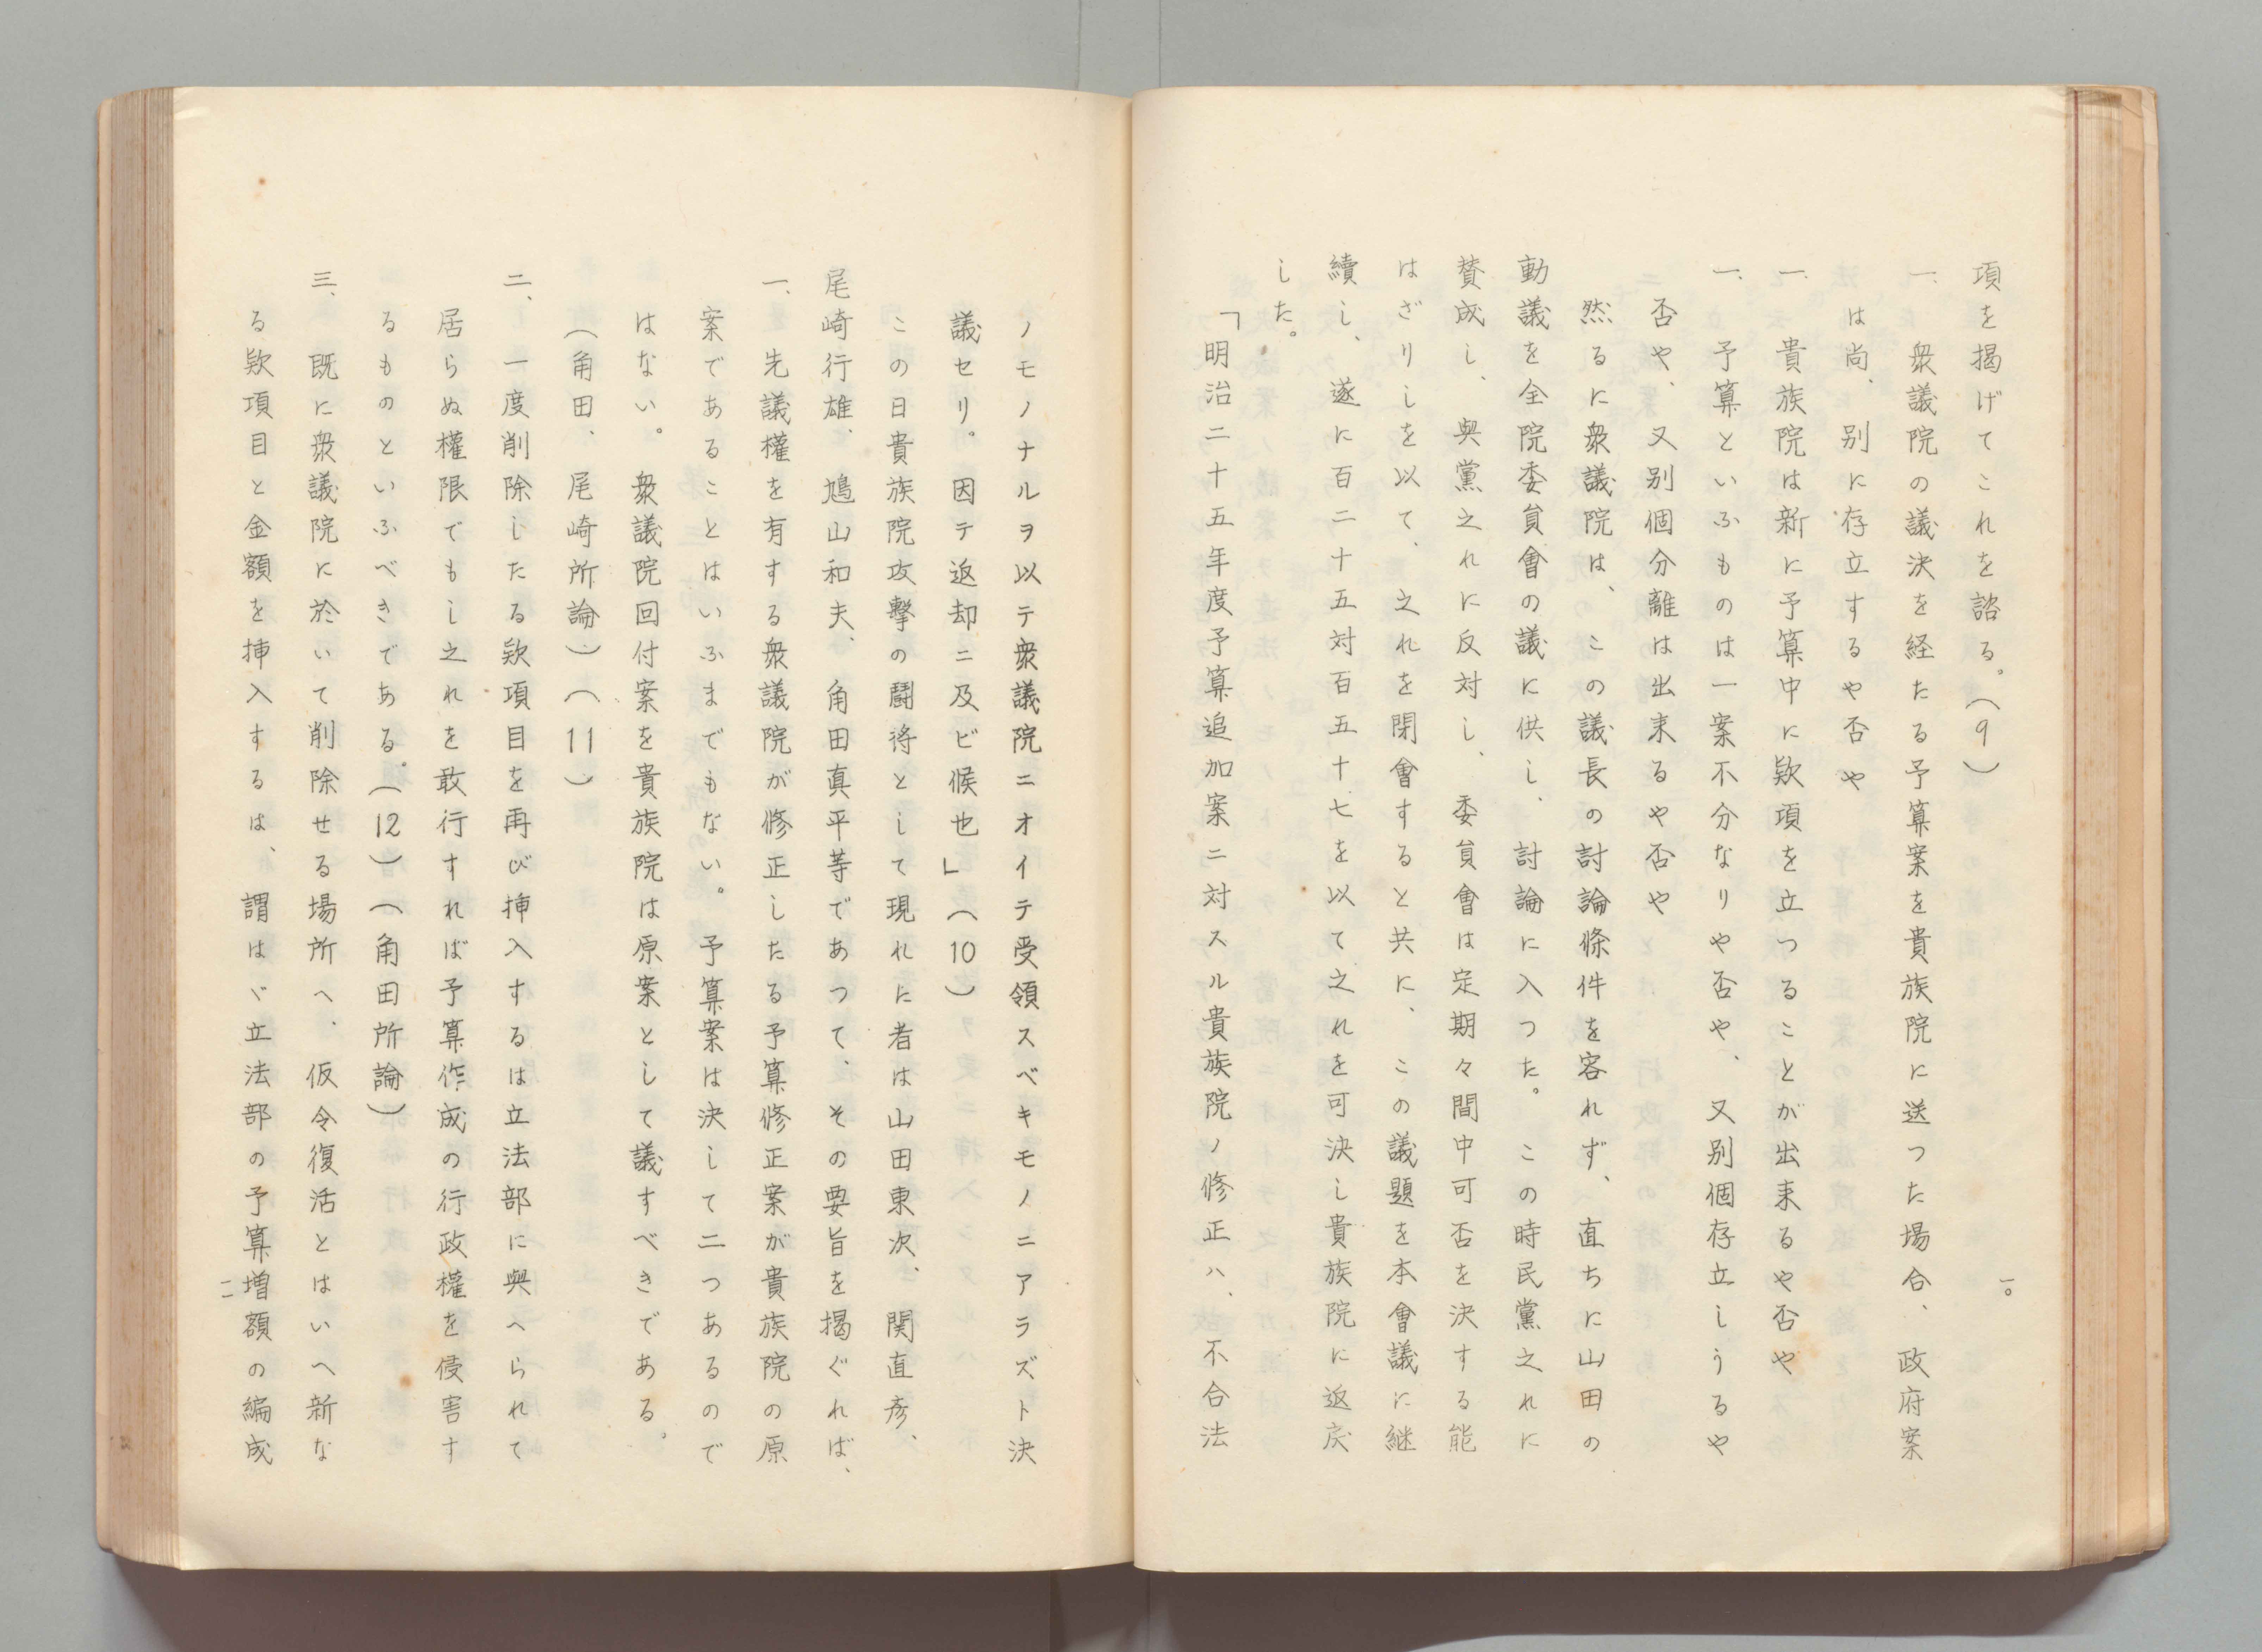 項を揭げてこれを諮る。(9)
一、衆議院の議決を経たる予算案を貴族院に送つた場合、政府案
は尚、別に存立するや否や
一、貴族院は新に予算中に欵項を立つることが出来るや否や
一、予算といふものは一案不分なりや否や、又別個存立しうるや
否や、又別個分離は出来るや否や
然るに衆議院は、この議長の討論條件を容れず、直ちに山田の
動議を全院委員會の議に供し、討論に入つた。この時民黨之れに
賛成し、與黨之れに反対し、委員會は定期々間中可否を決する能
はざりしを以て、之れを閉會すると共に、この議題を本會議に継
續し、遂に百二十五対百五十七を以て之れを可決し貴族院に返戻
した。
「明治二十五年度予算追加案ニ対スル貴族院ノ修正ハ、不合法
一〇
ノモノナルヲ以テ衆議院ニオイテ受領スベキモノニアラズト決
議セリ。因テ返却ニ及ビ候也」(10)
この日貴族院攻擊の鬪将として現れに者は山田東次、関直彦、
尾崎行雄、鳩山和夫、角田真平等であつて、その要旨を揭ぐれば、
一、先議權を有する衆議院が修正したる予算修正案が貴族院の原
案であることはいふまでもない。予算案は決して二つあるので
はない。衆議院回付案を貴族院は原案として議すべきである。
(角田、尾崎所論)(11)
二、一度削除したる欵項目を再び挿入するは立法部に與へられて
居らぬ權限でもし之れを敢行すれば予算作成の行政權を侵害す
るものといふべきである。(12)(角田所論)
三、既に衆議院に於いて削除せる場所へ、仮令復活とはいへ新な
る欵項目と金額を挿入するは、謂はゞ立法部の予算増額の編成
一一